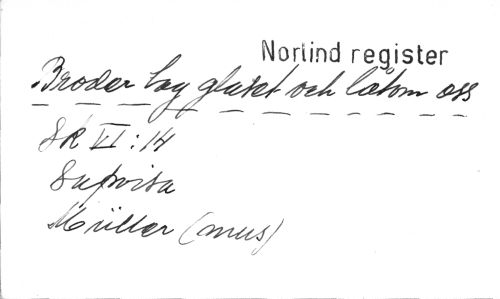 Norlind register
Broder tag glaset och låtom oss
SR VI:14
Supvisa
Müller (mus)